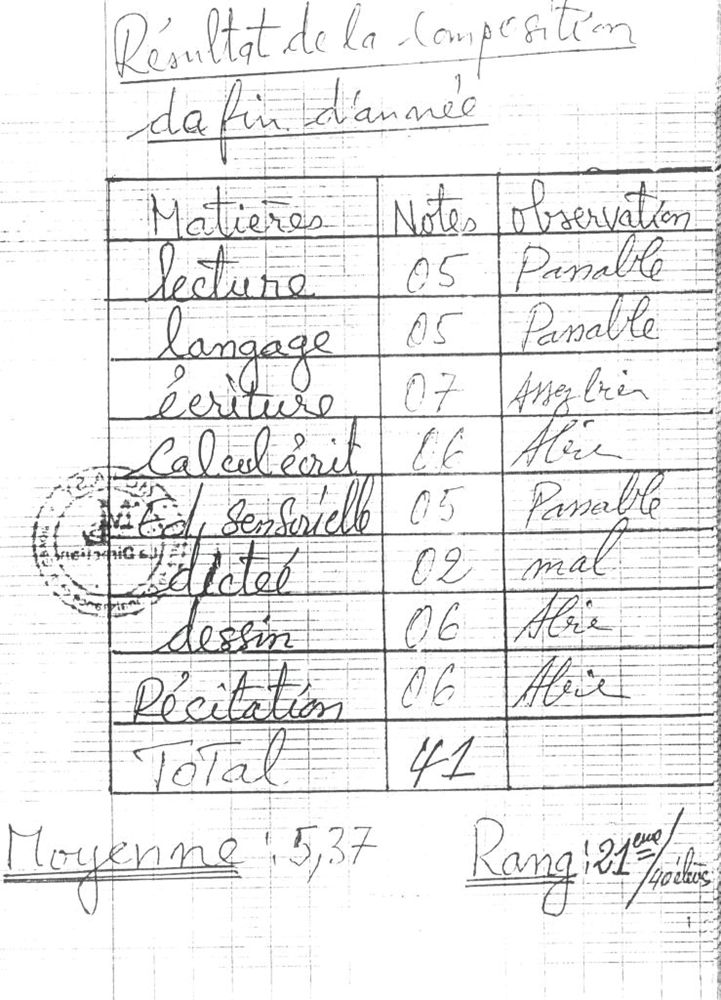 Résultat de la composition
da fin d'année
Matières Notes Observation
lecture 05 Passable
langage 05 Passable
écriture 07 Assez bien
Calcul écrit 06 Abie
Ed, sensorielle 05 Passable
dicteé 02 mal
dessin 06 Abie
Récitation 06 Abie
ToTal 41
Moyenne : 5,37 Rang : 21ème/40 élèves